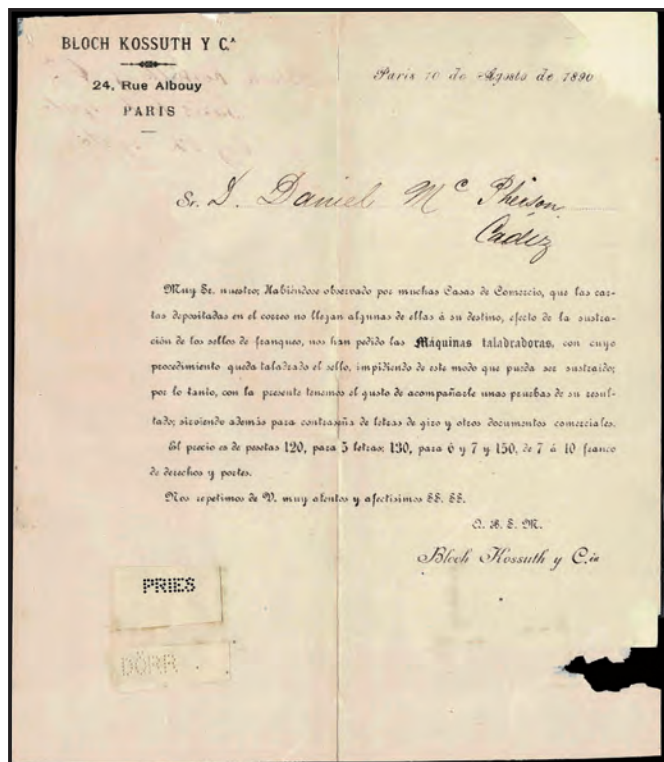 BLOCH KOSSUTH Y C.ᴬ
24, Rue Albouy
PARIS
Paris 10 de Agosto de 1890
Sr. D. Daniel Mc Pherson
Cadiz
Muy Sr. nuestro; Habiéndose observado por muchas Casas de Comercio, que las car-
tas depositadas en el correo no llegan algunas de ellas á su destino, efecto de la sustra-
ción de los sellos de franqueo, nos han pedido las Máquinas taladradoras, con cuyo
procedimiento queda taladrado el sello, impidiendo de este modo que pueda ser sustraido;
por lo tanto, con la presente tenemos el gusto de acompañarle unas pruebas de su resul-
tado; sirviendo además para contraseña de letras de giro y otros documentos comerciales.
El precio es de pesetas 120, para 5 letras; 130, para 6 y 7 y 150, de 7 á 10 franco
de derechos y portes.
Nos repetimos de V. muy atentos y afectísimos SS. SS.
Q. B. S. M.
Bloch Kossuth y C.ia
PRIES
DÖRR